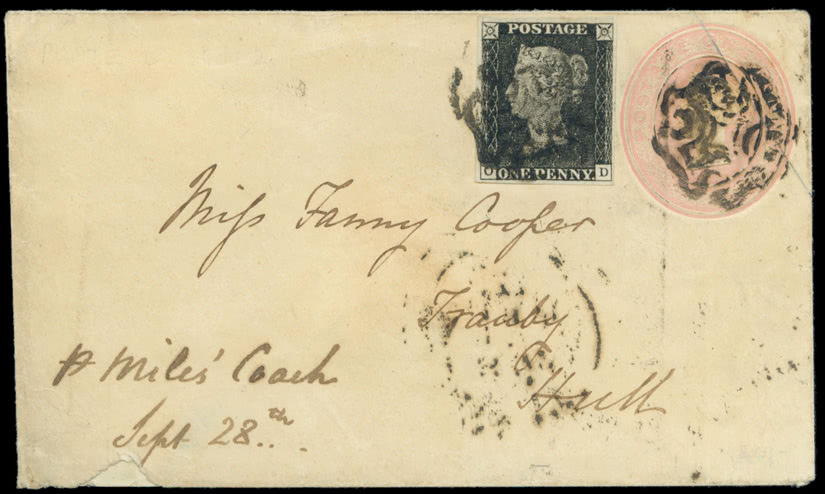 POSTAGE
O ONE PENNY. D
POSTAGE
Miss Fanny Cooper
Tranby
Hull
p Miles' Coach
Sept 28th..